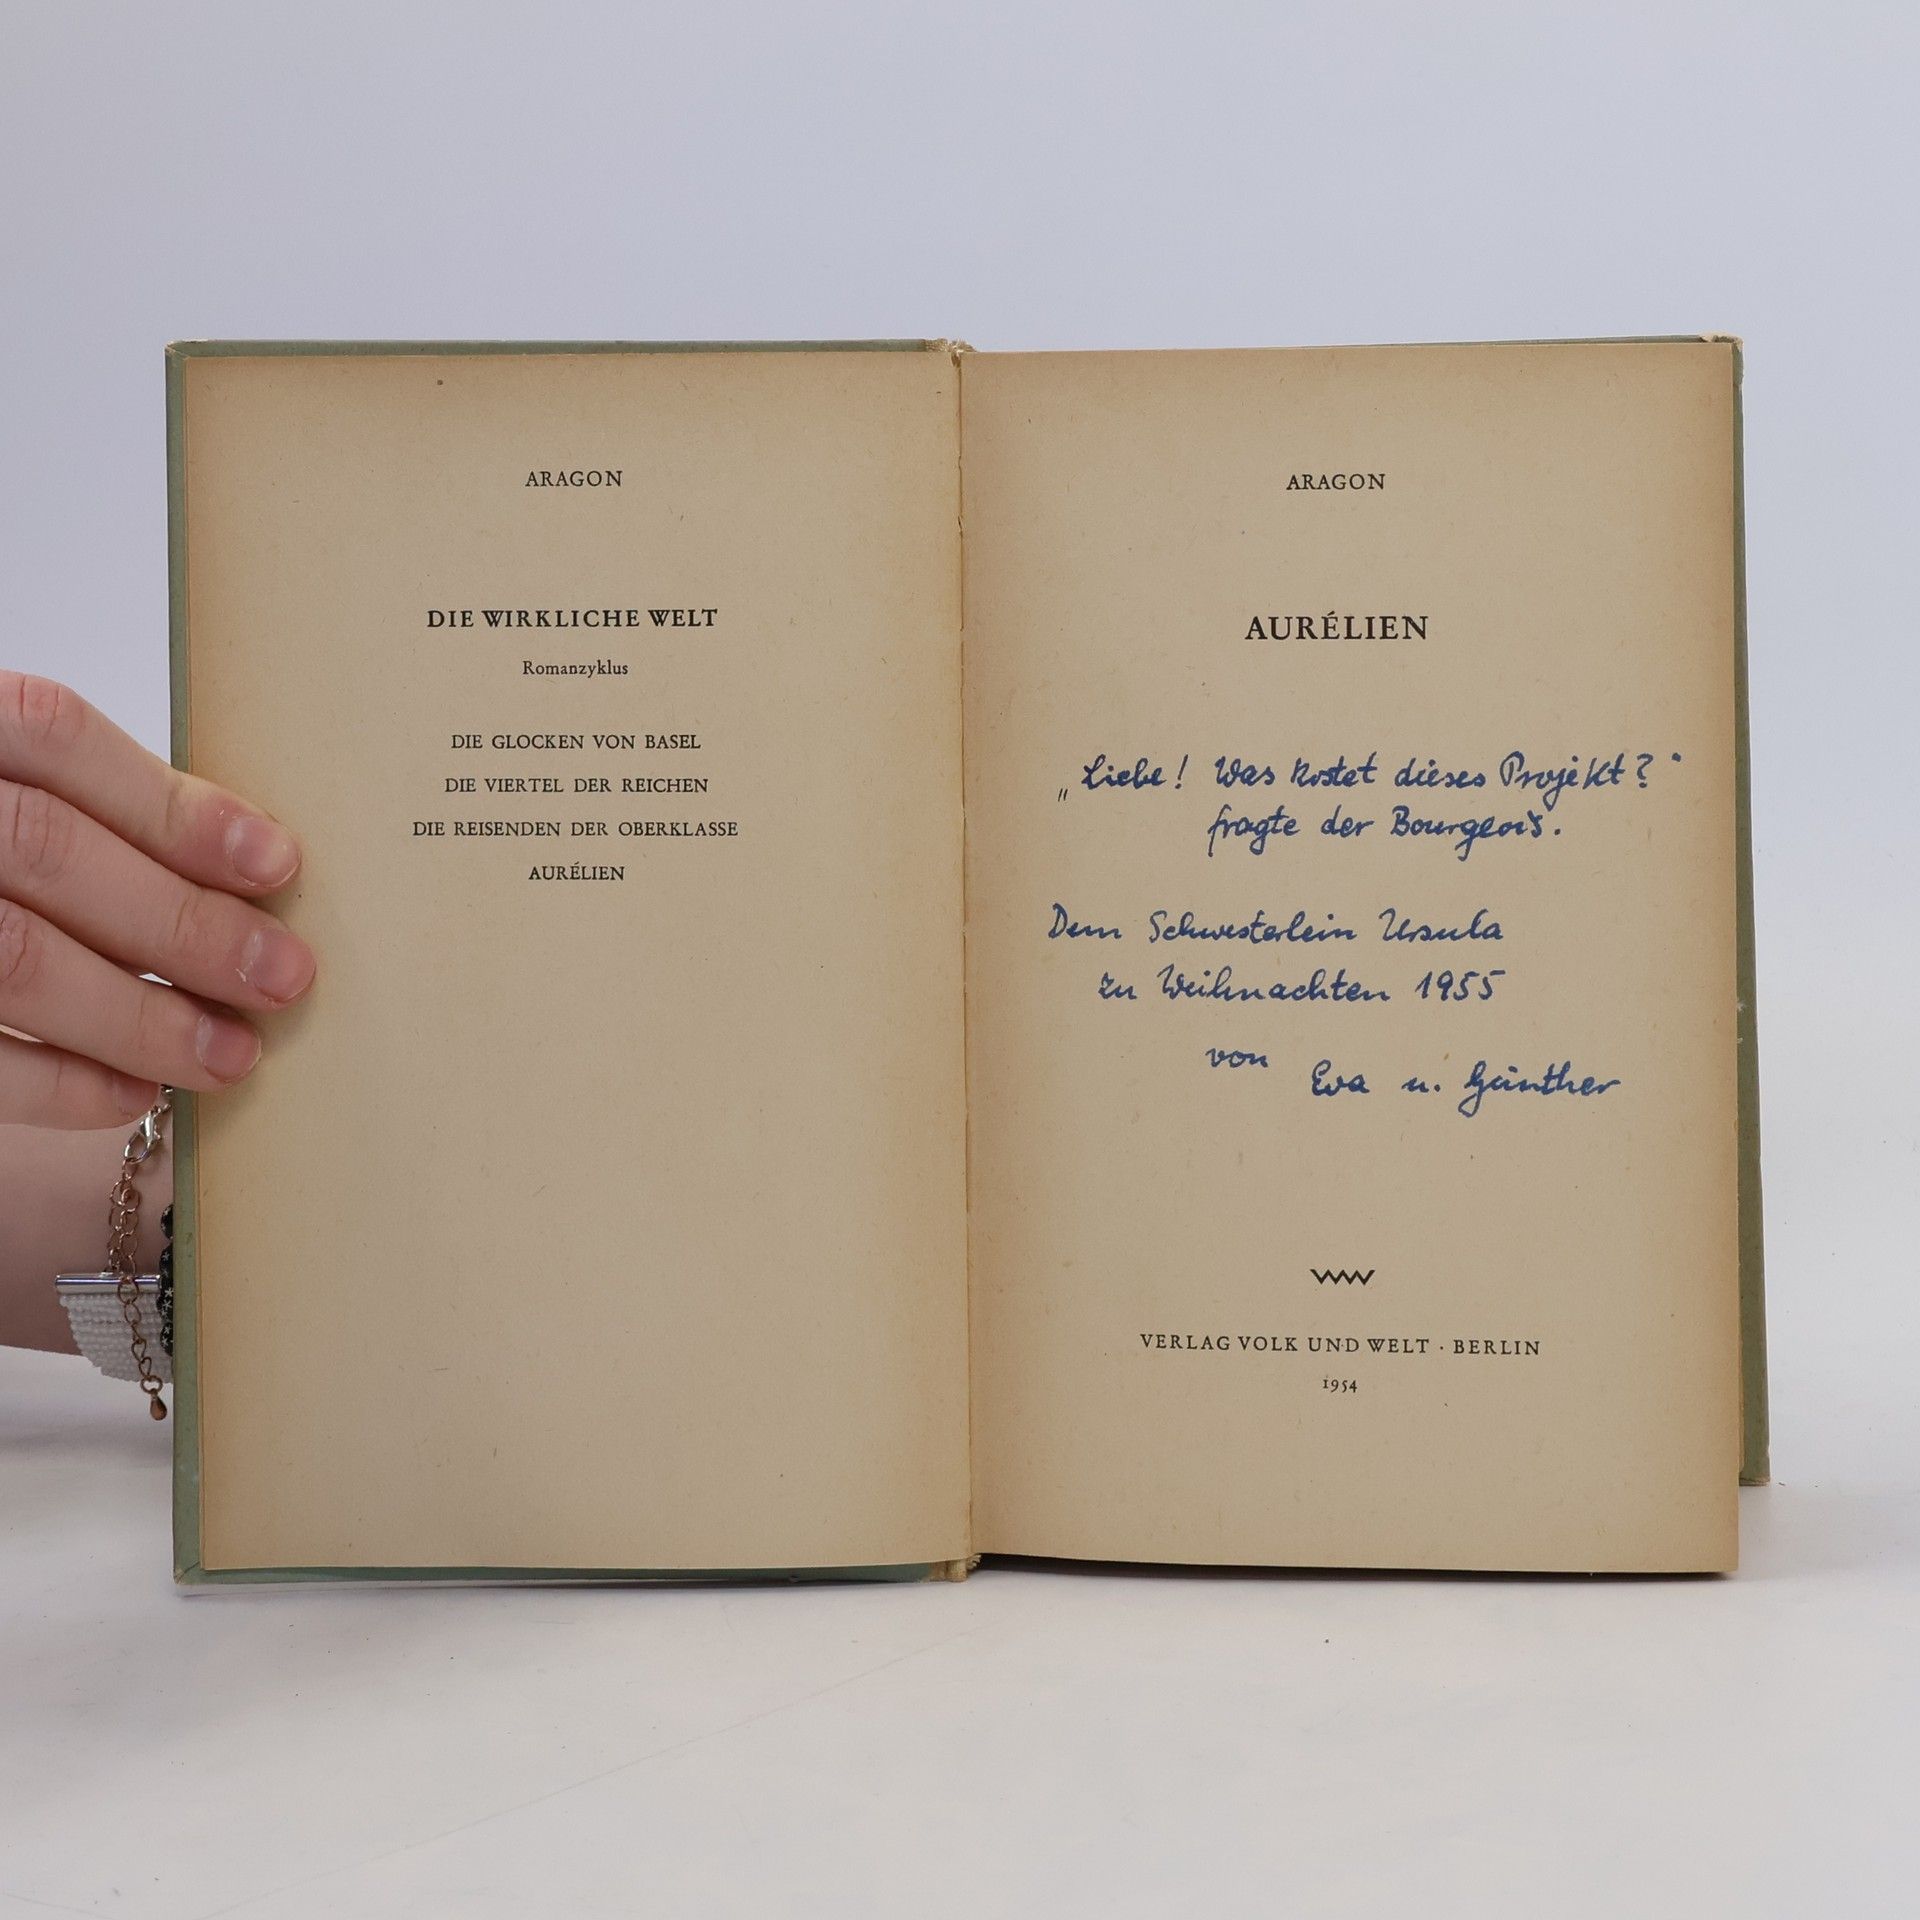 ARAGON
DIE WIRKLICHE WELT
Romanzyklus
DIE GLOCKEN VON BASEL
DIE VIERTEL DER REICHEN
DIE REISENDEN DER OBERKLASSE
AURÉLIEN
ARAGON
AURÉLIEN
„Liebe! Was kostet dieses Projekt?“
fragte der Bourgeois.
Dem Schwesterlein Ursula
zu Weihnachten 1955
von Eva u. Günther
VERLAG VOLK UND WELT · BERLIN
1954